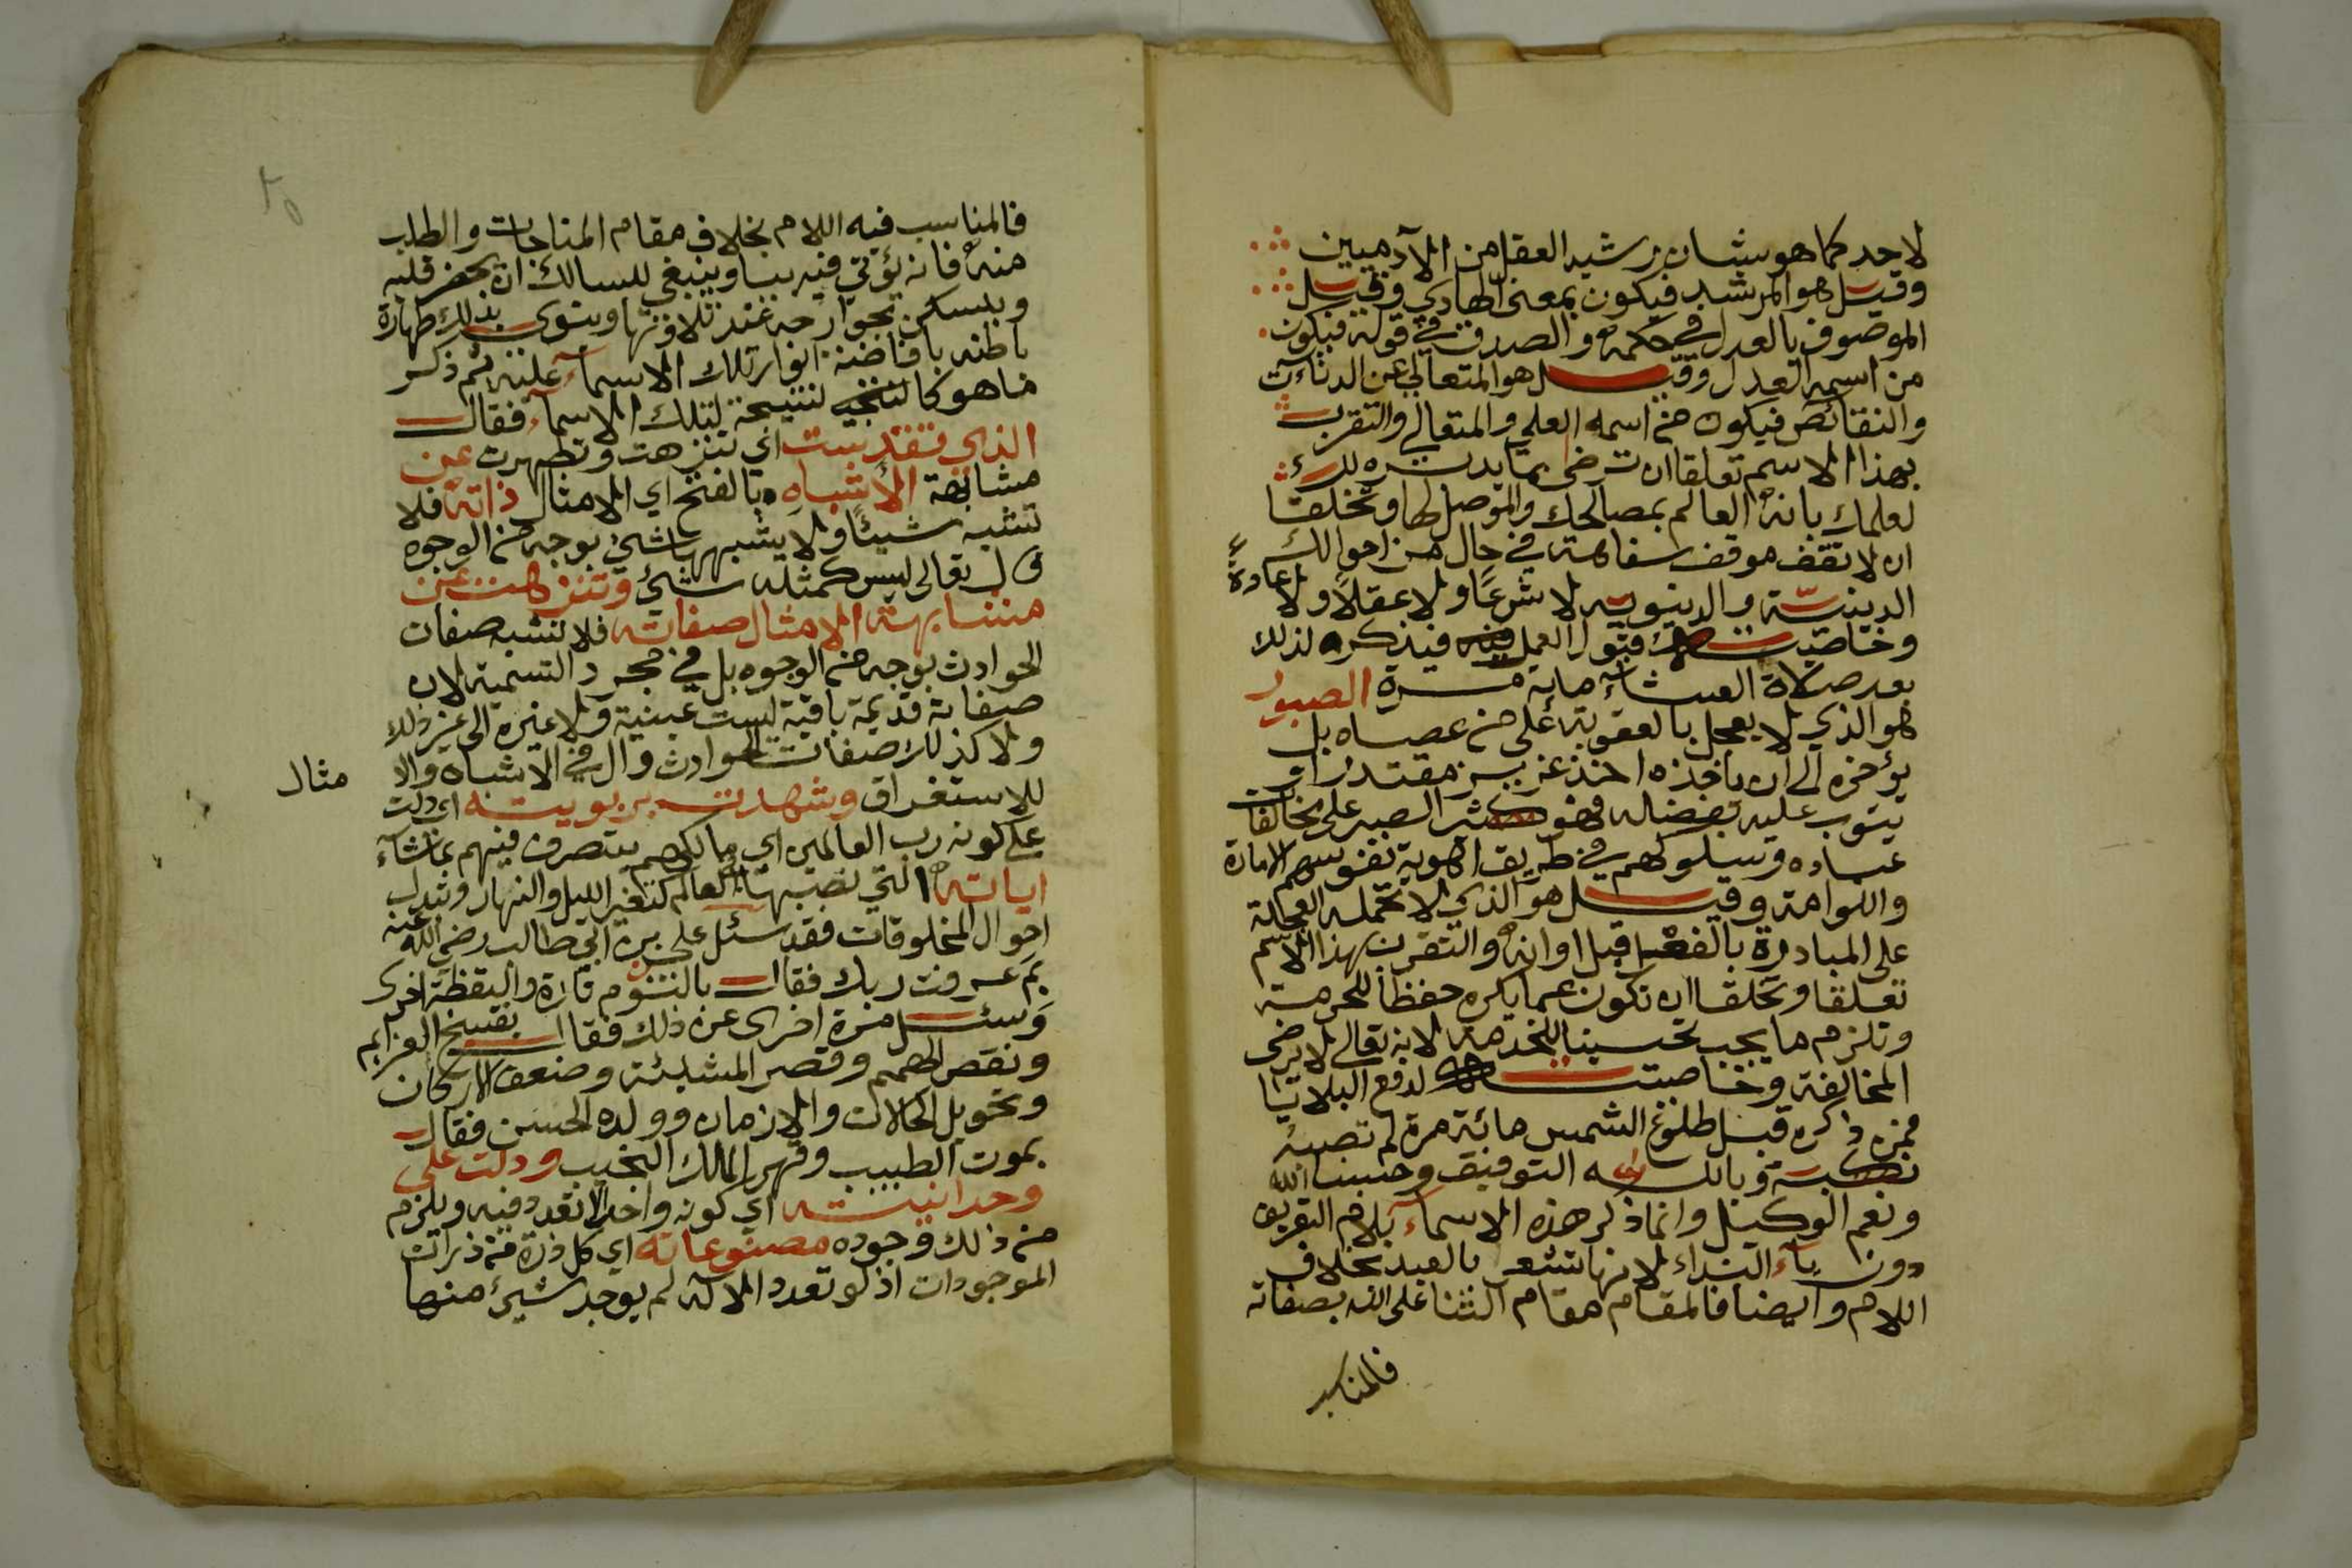 لاحد كما هو شان رشيد العقل من الآدميين
وقيل هو المرشد فيكون بمعنى الهادي وقيل
الموصوف بالعدل في حكمه والصدق في قوله فيكون
من اسمه العدل وقيل هو المتعالي عن الدناءت
والنقائص فيكون من اسمه العلي والمتعالي والتقرب
بهذا الاسم تعلقا ان ترضى بما يدبره لك
لعلمك بانه العالم بمصالحك والموصل لها وتخلقا
ان لا تقف موقف سفاهة في حال من احوالك
الدينية والدنيوية لا شرعًا ولا عقلاً ولا عادة
وخاصيته قبول العمل فيذكره لذلك
بعد صلاة العشاء ماية مرة الصبور
هو الذي لا يعجل بالعقوبة على من عصاه بل
يؤخره الى ان ياخذه اخذ عزيز مقتدر او
يتوب عليه بفضله فهو كثير الصبر على مخالفات
عباده وسلوكهم في طريق اهوية نفوسهم الامارة
واللوامة وقيل هو الذي لا تحمله العجلة
على المبادرة بالفعل قبل اوانه والتقرب بهذا الاسم
تعلقا وتخلقا ان تكون عما يكره حفظا للحرمة
وتلزم ما يجب تحسينا للخدمة لانه تعالى لا يرضى
المخالفة وخاصيته لدفع البلايا
فمن ذكره قبل طلوع الشمس مائة مرة لم تصبه
نكبة وبالله التوفيق وحسبنا الله
ونعم الوكيل وانما ذكر هذه الاسماء بلام التعريف
دون ياء النداء لانها تشعر بالعبد بخلاف
اللام وايضا فالمقام مقام الثنا على الله بصفاته
فالمناسب
فالمناسب فيه اللام بخلاف مقام المناجات والطلب
منه فانه يؤتي فيه بيا وينبغي للسالك ان يحضر قلبه
ويسكن جوارحه عند تلاوتها وينوى بذلك طهارة
باطنه بافاضة انوار تلك الاسماء عليه ثم ذكر
ما هو كالنتيجة لتلك الاسماء فقال
الذي تقدست اي تنزهت وتطهرت عن
مشابهة الأشباه بالفتح اي الامثال ذاته فلا
تشبه شيئًا ولا يشبهها شئ بوجه من الوجوه
قال تعالى ليس كمثله شئ وتنزهت عن
مشابهة الامثال صفاته فلا تشبه صفات
الحوادث بوجه من الوجوه بل في مجرد التسمية لان
صفاته قديمة باقية ليست عينية ولا غيره الى غير ذلك
ولا كذلك صفات الحوادث وال في الاشباه والا
مثال
للاستغراق وشهدت بربوبيته اي دلت
على كونه رب العالمين اي مالكهم يتصرف فيهم بما شاء
اياته التي نصبها العالم كتغير الليل والنهار وتبدل
احوال المخلوقات فقد سئل علي بن ابي طالب رضي الله عنه
بم عرفت ربك فقال بالنوم تارة واليقظة اخرى
وسئل مرة اخرى عن ذلك فقال بفسخ العزايم
ونقص الهمم وقصر المشيئة وضعف الاركان
وتحويل الحالات والازمان وولده الحسن فقال
بموت الطبيب وقهر المالك النجيب ودلت على
وحدانيته اي كونه واحدا لا تعدد فيه ويلزم
من ذلك وجوده مصنوعاته اي كل ذرة من ذرات
الموجودات اذ لو تعدد الاله لم يوجد شيئ منها